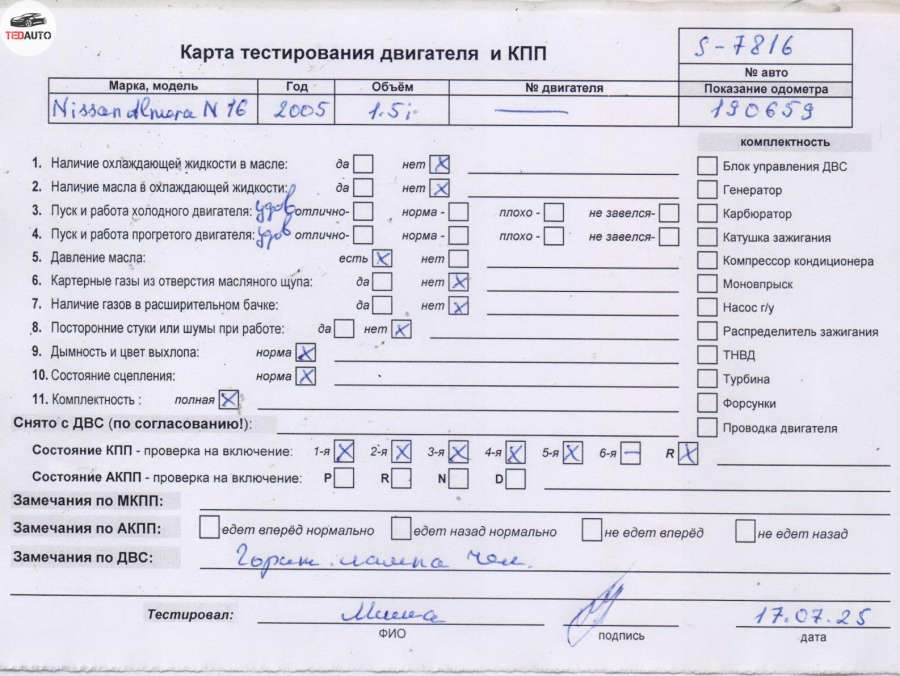 TEDAUTO
Карта тестирования двигателя и КПП
S-7816
№ авто
Марка, модель Год Объём № двигателя Показание одометра
Nissan Almera N 16 2005 1.5i — 190659
комплектность
1. Наличие охлаждающей жидкости в масле: да нет X
2. Наличие масла в охлаждающей жидкости: да нет X
3. Пуск и работа холодного двигателя: удов отлично- норма - плохо - не завелся-
4. Пуск и работа прогретого двигателя: удов отлично- норма - плохо - не завелся-
5. Давление масла: есть X нет
6. Картерные газы из отверстия масляного щупа: да нет X
7. Наличие газов в расширительном бачке: да нет X
8. Посторонние стуки или шумы при работе: да нет X
9. Дымность и цвет выхлопа: норма X
10. Состояние сцепления: норма X
11. Комплектность : полная X
Блок управления ДВС
Генератор
Карбюратор
Катушка зажигания
Компрессор кондиционера
Моновпрыск
Насос г/у
Распределитель зажигания
ТНВД
Турбина
Форсунки
Проводка двигателя
Снято с ДВС (по согласованию!):
Состояние КПП - проверка на включение: 1-я X 2-я X 3-я X 4-я X 5-я X 6-я — R X
Состояние АКПП - проверка на включение: P R N D
Замечания по МКПП:
Замечания по АКПП: едет вперёд нормально едет назад нормально не едет вперёд не едет назад
Замечания по ДВС: Горит лампа чек.
Тестировал: Миша 17.07.25
ФИО подпись дата